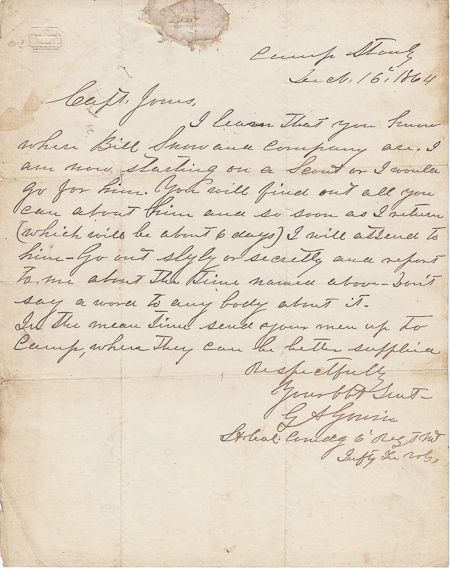 Camp
Dec. 16, 1864
Capt. Jones,
I learn that you know
where Bill Snow and company are. I
am now starting on a Scout or I would
go for him. You will find out all you
can about him and so soon as I return
(which will be about 6 days) I will attend to
him - Go out slyly or secretly and report
to me about the time named above - Don't
say a word to any body about it -
In the mean time send your men up to
Camp, where they can be better supplied
Respectfully
Your Obt Servt -
G A Gowin
Lt Col. Comdg 6" Regt Mt
Infty Te Vols.